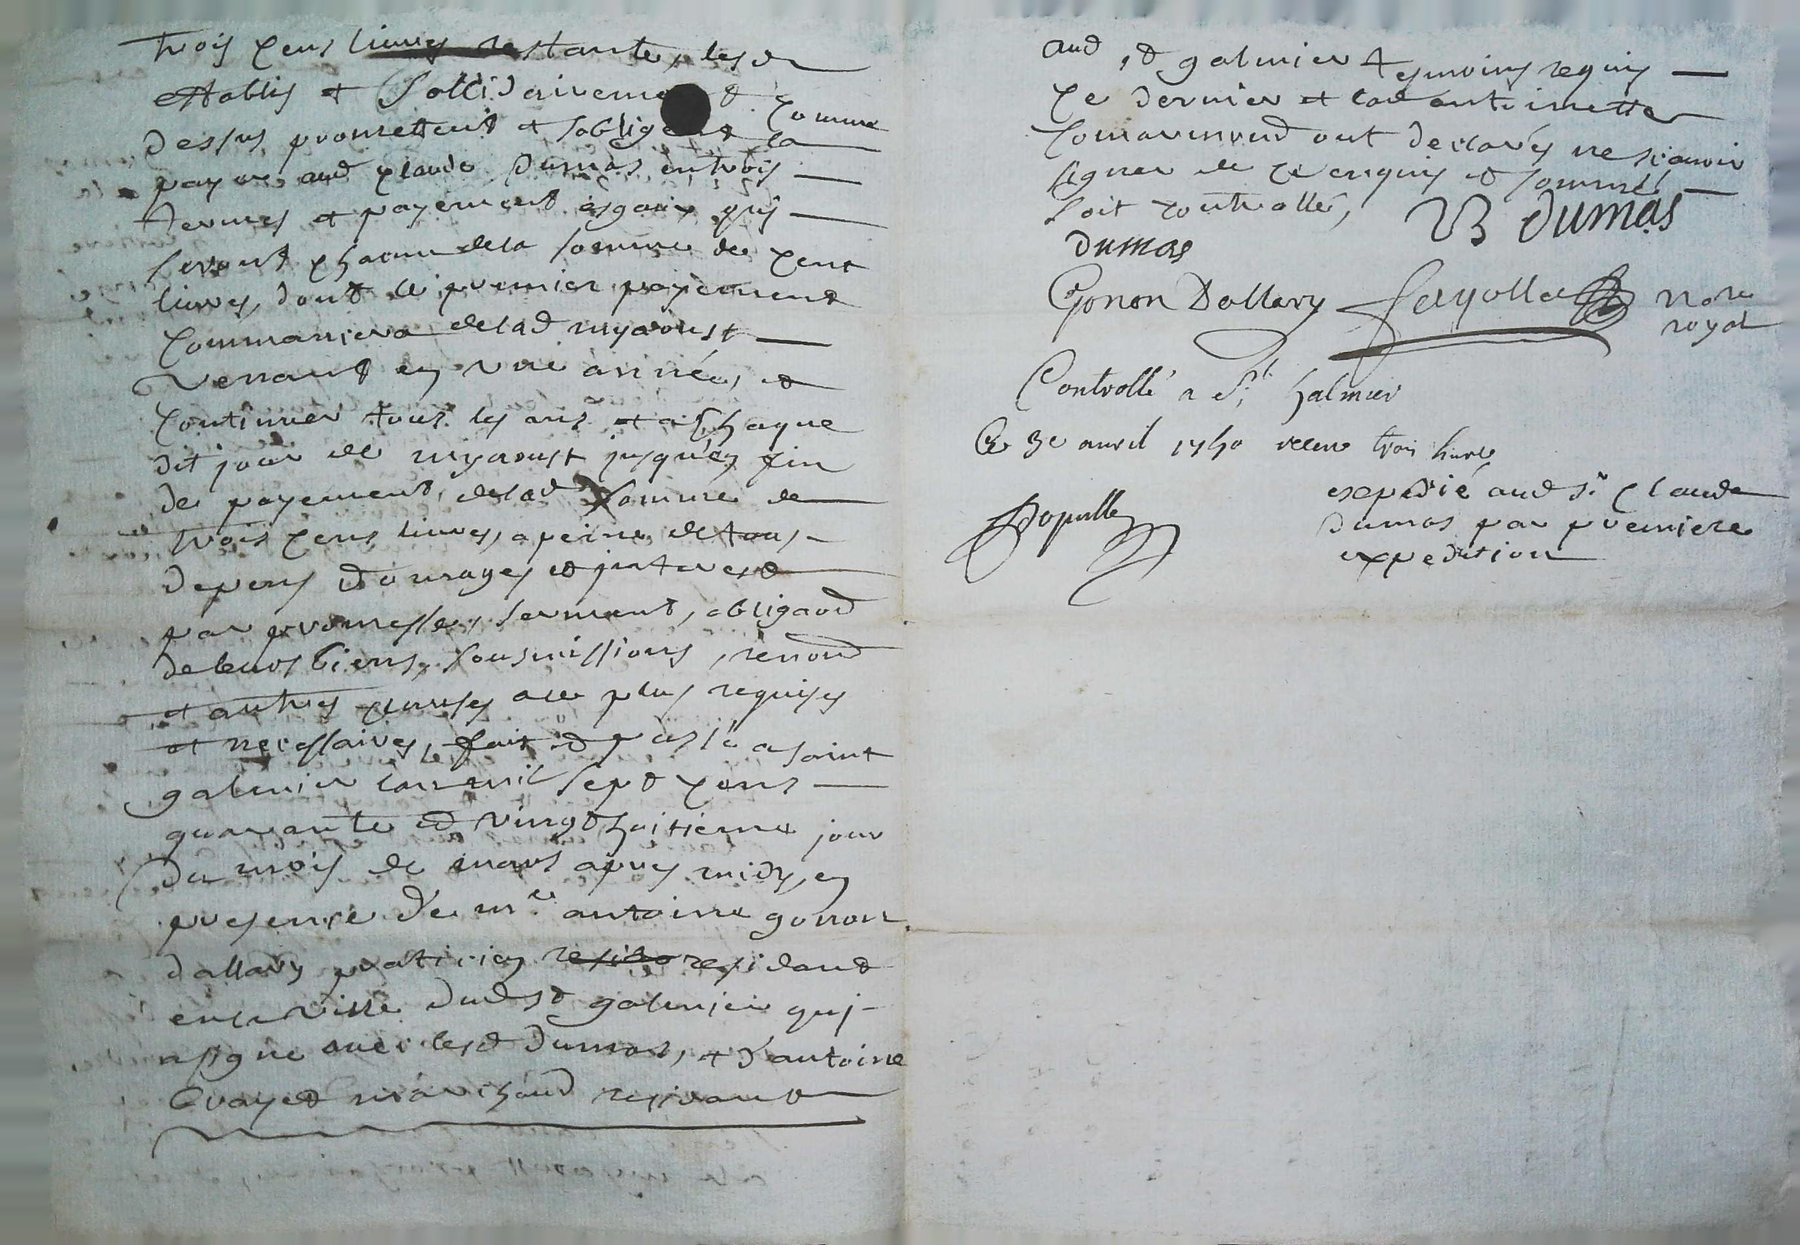 trois cens livres restante, lesd
establis et sollidairement et comme
dessus promettent et sobligent la
payer aud claude dumas en trois
termes et payement esgaux quj
seront chacun de la somme de cent
livres, dont le premier payement
commancera de lad myaoust
venant en une année, et
continuer tous les ans et a chaque
dit jour de myaoust jusquen fin
de payement, de lad somme de
trois cens livres, a peine de tous
depens domages et jnterest
par promesses, serment, obligaõn
de leurs biens, sousmissions, renonõn
et autres clauses au plus requises
et necessaires, fait et passé a saint
galmier lan mil sept cens
quarante et vingt huitieme jour
du mois de mars apres midy, en
presence de me antoine gonon
dallary praticien residant
en la ville dud st galmier quj
a signe avec lesd dumas, et d'antoine
Crayet marchand residant
aud st galmier tesmoins requis
ce dernier et lad antoinette
ont declarés ne scavoir
signer de ce enquis et sommés
soit controllé,
B dumas
dumas
Gonon Dallary
nore
royal
Controllé a St galmier
Ce 3e avril 1740 receu trois livres
expedié aud sr Claude
dumas par premiere
expedition